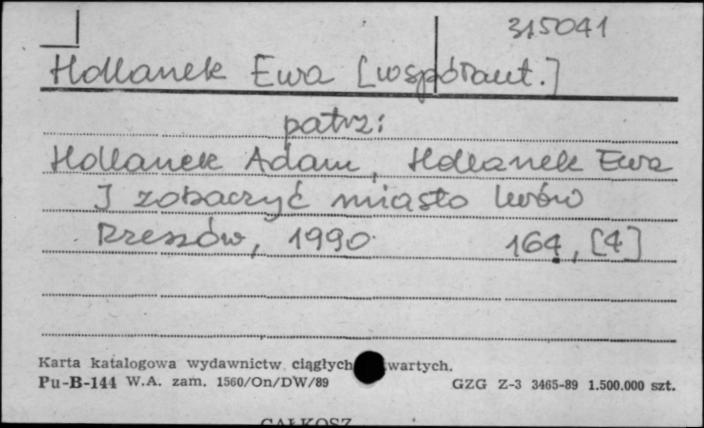 315041
Hollanek Ewa [współaut.]
patrz:
Hollanek Adam, Hollanek Ewa
I zobaczyć miasto Lwów
Rzeszów, 1990 164, [4]
Karta katalogowa wydawnictw ciągłych wartych.
Pu-B-144 W.A. zam. 1560/On/DW/89 GZG Z-3 3465-89 1.500.000 szt.